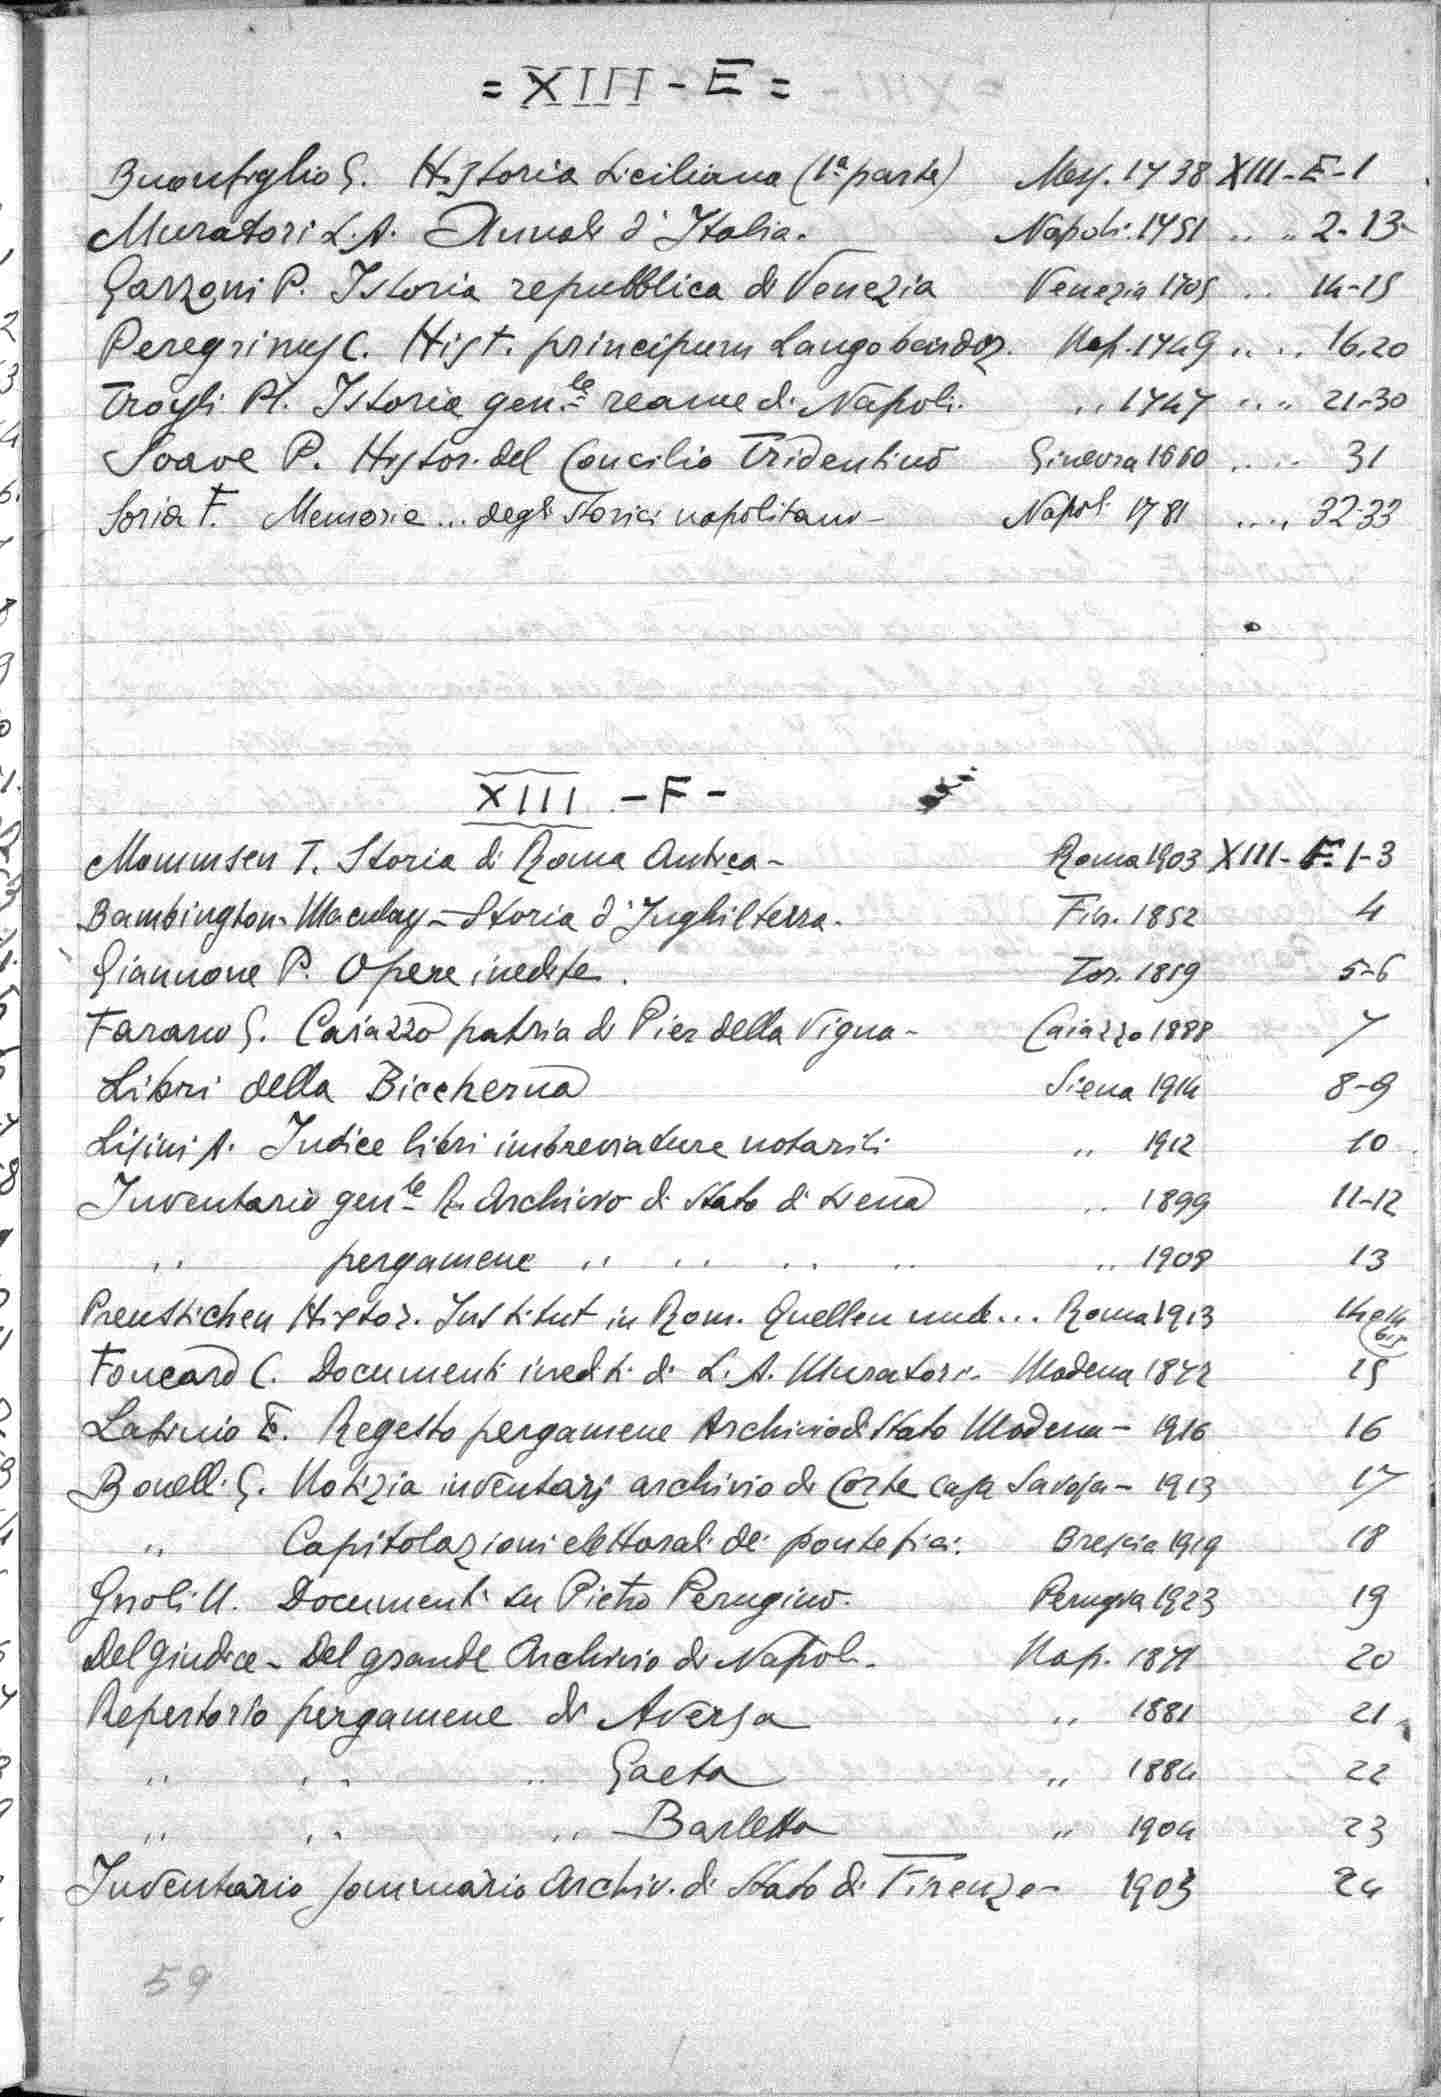 = XIII - E =
Buonfiglio G. Historia Siciliana (1ª parte) Mess. 1738 XIII-E-1
Muratori L.A. Annali d'Italia. Napoli 1751 " " 2-13
Garzoni P. Istoria repubblica di Venezia Venezia 1705 " 14-15
Peregrinus C. Hist. principum Langobardor. Nap. 1749 " " 16-20
Troyli Pl. Istoria gen.le reame di Napoli. " 1747 " " 21-30
Soave P. Histor. del Concilio Tridentino Ginevra 1660 " " 31
Soria F. Memorie ... degli storici napolitani - Napoli 1781 " " 32-33
XIII - F -
Mommsen T. Storia di Roma Antica - Roma 1903 XIII-F-1-3
Bambington-Maculay - Storia d'Inghilterra. Fir. 1852 4
Giannone P. Opere inedite. Tor. 1859 5-6
Farano G. Caiazzo patria di Pier della Vigna - Caiazzo 1888 7
Libri della Biccherna Siena 1914 8-9
Lisini A. Indice libri imbreviature notarili " 1912 10
Inventario gen.le R. Archivio di Stato di Siena " 1899 11-12
" pergamene " " " " " 1908 13
Preussichen Histor. Institut in Rom. Quellen und... Roma 1913 14 e 14 bis
Foucard C. Documenti inediti di L. A. Muratori. Modena 1872 15
Latinio E. Regesto pergamene Archivio di Stato Modena - 1916 16
Bonelli G. Notizia inventarj archivio di Corte casa Savoja - 1913 17
" Capitolazioni elettorali dei pontefici. Brescia 1919 18
Gnoli U. Documenti su Pietro Perugino. Perugia 1923 19
Del Giudice - Del grande Archivio di Napoli. Nap. 1871 20
Repertorio pergamene di Aversa " 1881 21
" " " Gaeta " 1884 22
" " " Barletta " 1904 23
Inventario sommario Archiv. di Stato di Firenze - 1903 24
59